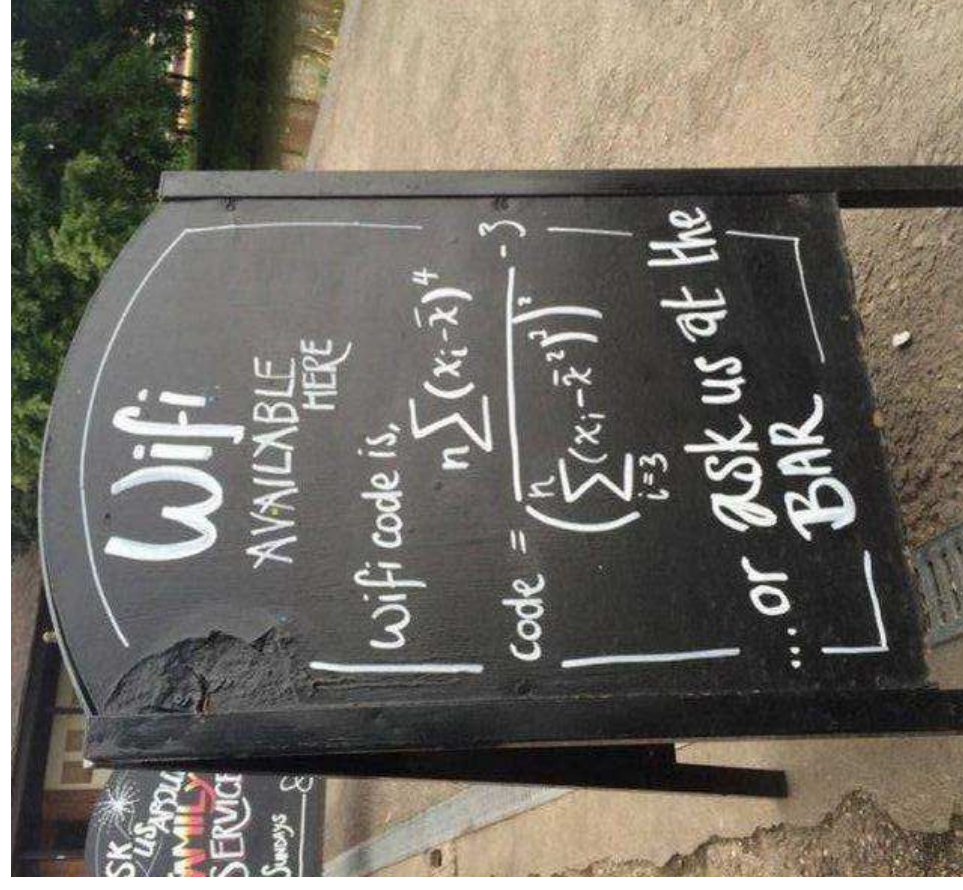 Wifi
AVAILABLE
HERE
Wifi code is,
n∑(xi-x̄)⁴
code = ―――――― -3
(∑ⁿᵢ₌₃(xi-x̄²)²)²
...or ask us at the
BAR
ASK
US ABOUT
FAMILY
SERVICE
SUNDAYS &